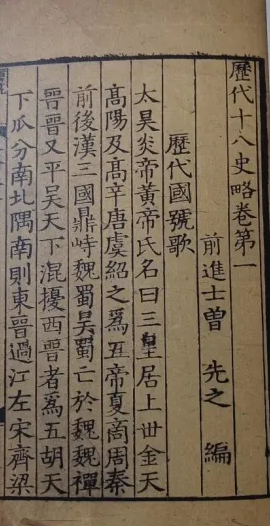 歷代十八史略卷第一
前進士曽 先之 編
歷代國號歌
太昊炎帝黃帝氏名曰三皇居上世金天
髙陽及髙辛唐虞紹之爲五帝夏商周秦
前後漢三國鼎峙魏蜀吴蜀亡於魏魏禪
晉晉又平吴天下混擾西晉者爲五胡天
下瓜分南北隅南則東晉過江左宋齊梁